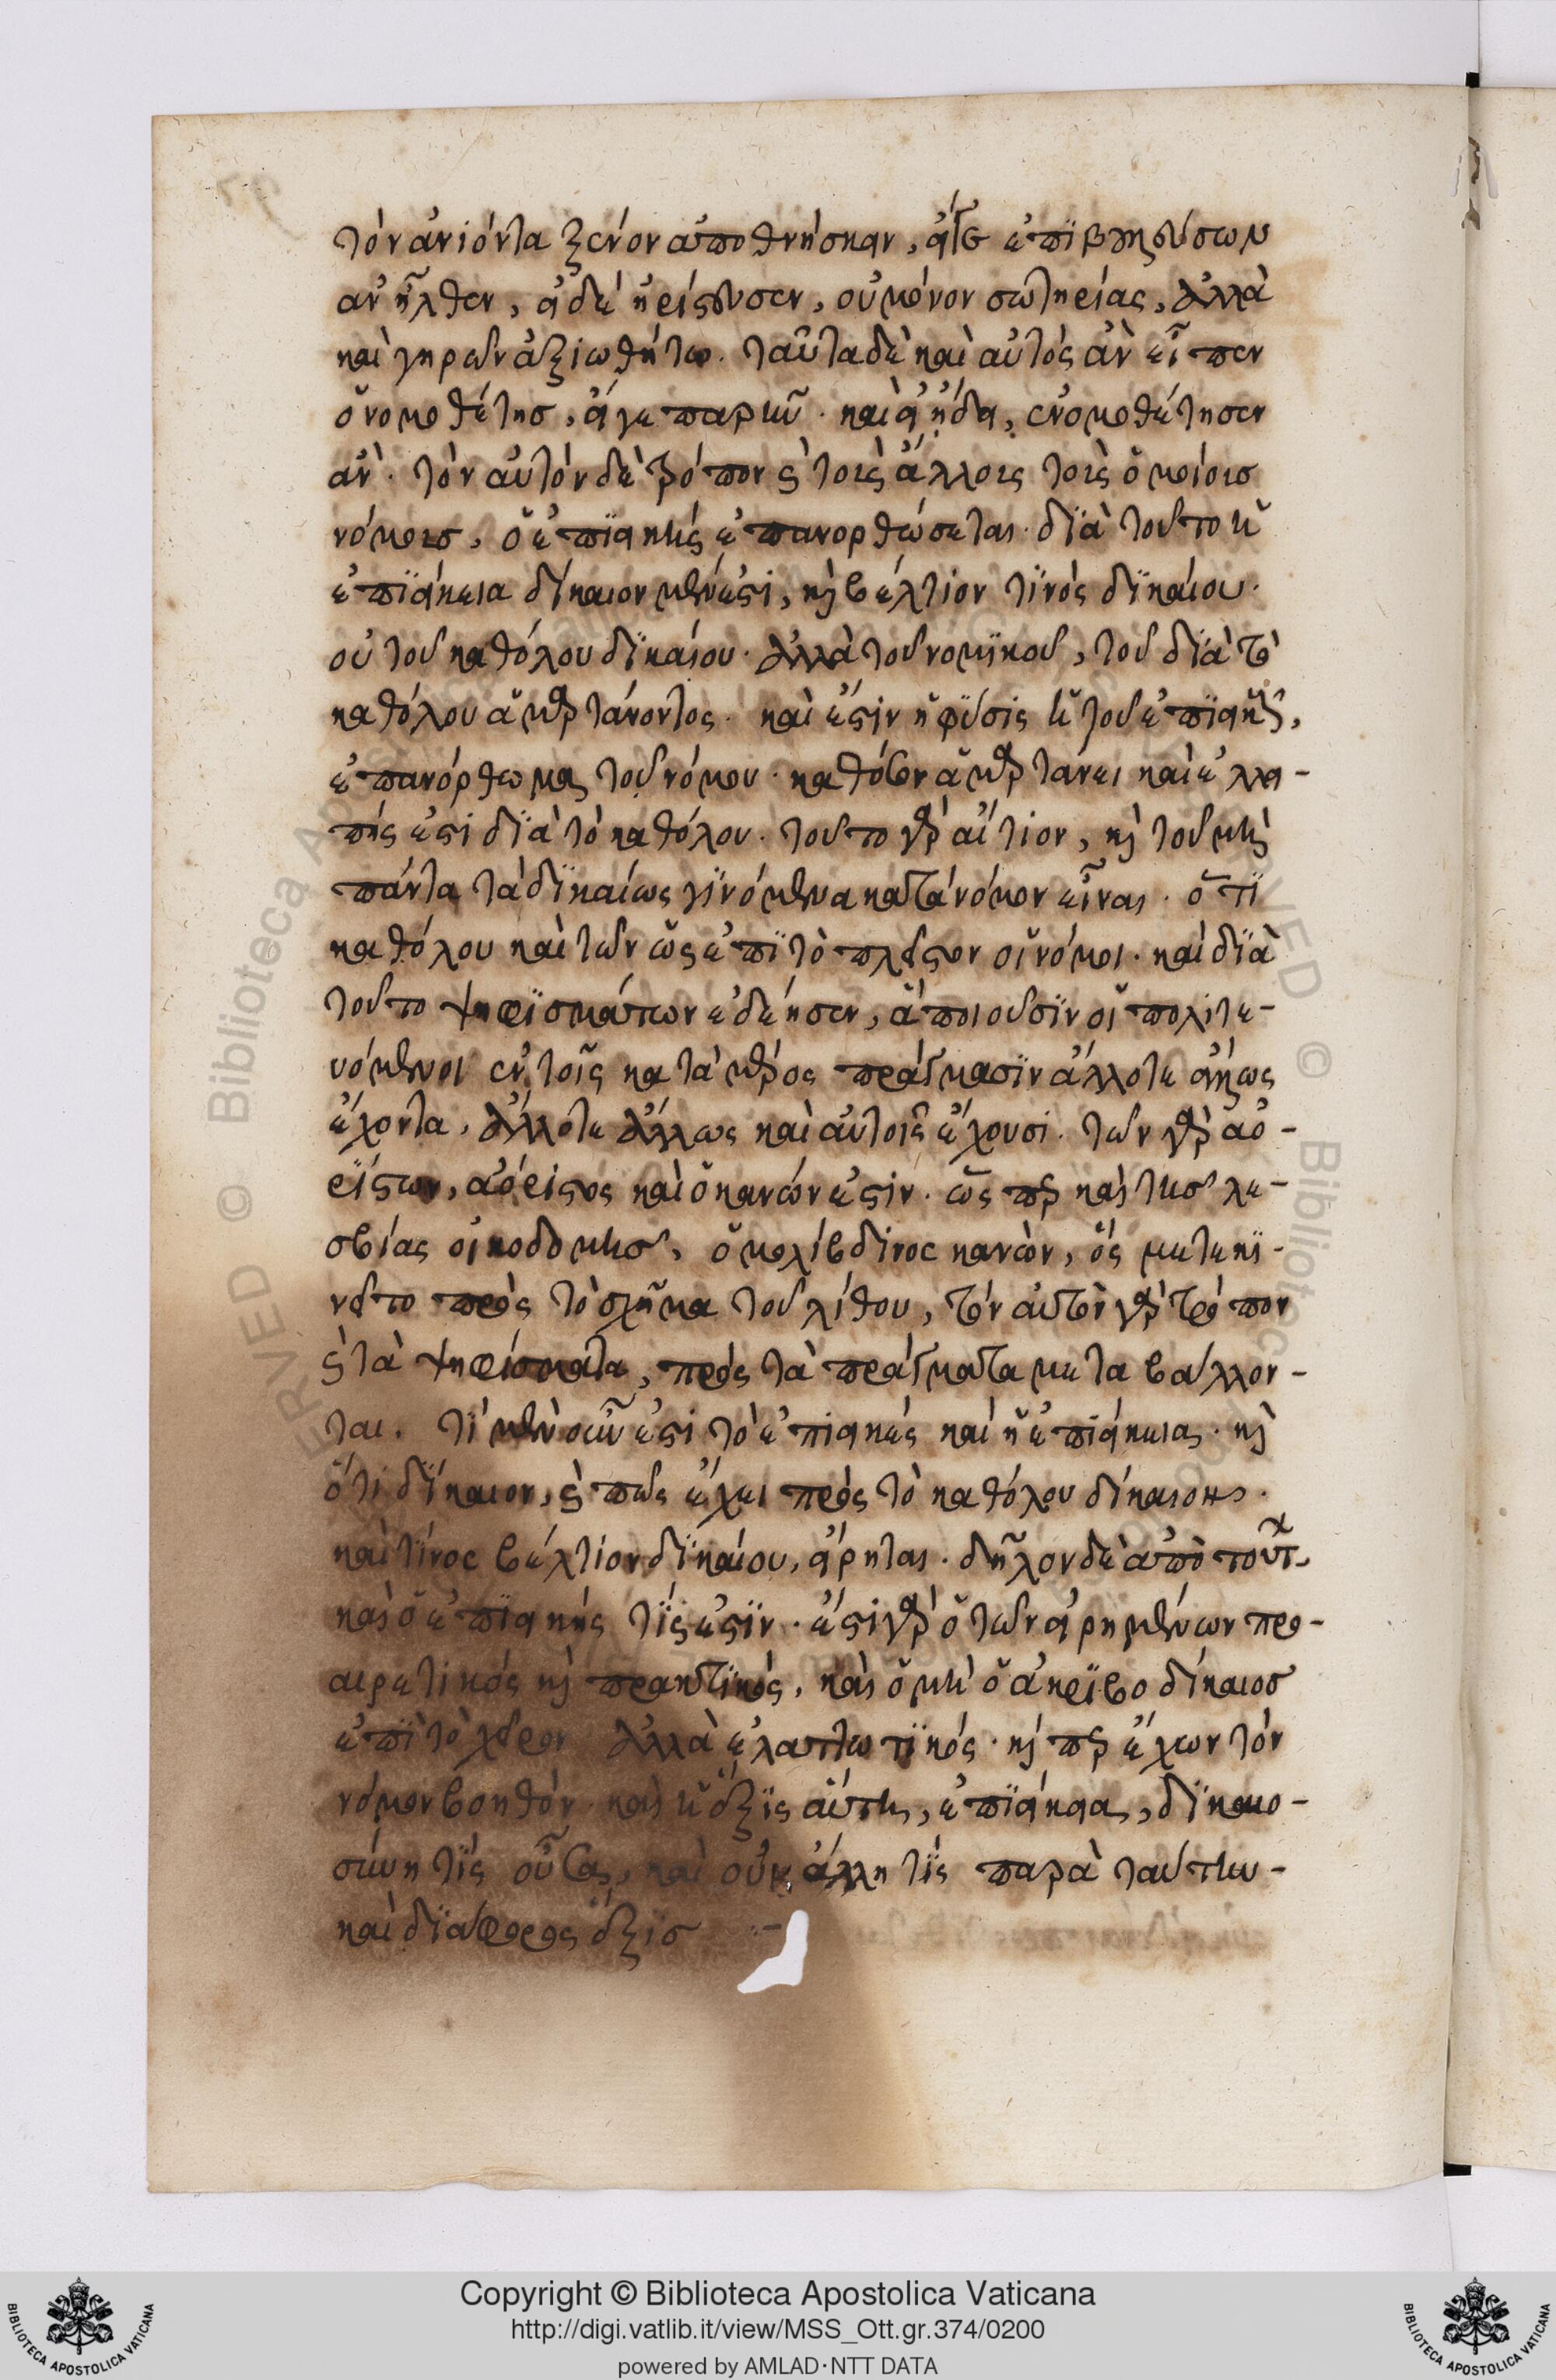 τὸν ἀνιόντα ξένον ἀποθνήσκειν, εἴτε ἐπιβουλεύσων
ἀνῆλθεν, εἰ δὲ ἠρίστευσεν, οὐ μόνον σωτηρίας, ἀλλὰ
καὶ γερῶν ἀξιωθήτω. ταῦτα δὲ καὶ αὐτὸς ἂν εἶπεν
ὁ νομοθέτης, εἴγε παρῆν. καὶ εἰ ᾔδει, ἐνομοθέτησεν
ἄν. τὸν αὐτὸν δὲ τρόπον καὶ τοὺς ἄλλους τοὺς ὁμοίους
νόμους, ὁ ἐπιεικὴς ἐπανορθώσεται. διὰ τοῦτο ἡ
ἐπιείκεια δίκαιον μέν ἐστι, καὶ βέλτιόν τινος δικαίου.
οὐ τοῦ καθόλου δικαίου. ἀλλὰ τοῦ νομικοῦ, τοῦ διὰ τὸ
καθόλου ἁμαρτάνοντος. καὶ ἔστιν ἡ φύσις ἡ τοῦ ἐπιεικοῦς,
ἐπανόρθωμα τοῦ νόμου. καθόσον ἁμαρτάνει καὶ ἐλλει-
πής ἐστι διὰ τὸ καθόλου. τοῦτο γὰρ αἴτιον, καὶ τοῦ μὴ
πάντα τὰ δικαίως γινόμενα κατὰ νόμον εἶναι. ὅτι
καθόλου καὶ τῶν ὡς ἐπὶ τὸ πλεῖστον οἱ νόμοι. καὶ διὰ
τοῦτο ψηφισμάτων ἐδέησεν, ἃ ποιοῦσιν οἱ πολιτε-
υόμενοι ἐν τοῖς κατὰ μέρος πράγμασιν ἄλλοτε ἄλλως
ἔχοντα, ἄλλοτε ἄλλως καὶ αὐτοῖς ἔχουσι. τῶν γὰρ ἀο-
ρίστων, ἀόριστος καὶ ὁ κανών ἐστιν. ὥσπερ καὶ τῆς λε-
σβίας οἰκοδομῆς, ὁ μολίβδινος κανὼν, ὃς μετεκι-
νεῖτο πρὸς τὸ σχῆμα τοῦ λίθου, τὸν αὐτὸν γὰρ τρόπον
καὶ τὰ ψηφίσματα, πρὸς τὰ πράγματα μεταβάλλον-
ται. τί μὲν οὖν ἐστι τὸ ἐπιεικὲς καὶ ἡ ἐπιείκεια. καὶ
ὅτι δίκαιον, καὶ πῶς ἔχει πρὸς τὸ καθόλου δίκαιον.
καὶ τίνος βέλτιον δικαίου, εἴρηται. δῆλον δὲ ἀπὸ τούτου
καὶ ὁ ἐπιεικὴς τίς ἐστιν. ἔστι γὰρ ὁ τῶν εἰρημένων προ-
αιρετικὸς καὶ πρακτικὸς, καὶ ὁ μὴ ὁ ἀκριβοδίκαιος
ἐπὶ τὸ χεῖρον ἀλλὰ ἐλαττωτικός. καίπερ ἔχων τὸν
νόμον βοηθόν. καὶ ἡ ἕξις αὕτη, ἐπιείκεια, δικαιο-
σύνη τὶς οὖσα, καὶ οὐκ ἄλλη τὶς παρὰ ταύτην
καὶ διάφορος ἕξις
Copyright © Biblioteca Apostolica Vaticana
http://digi.vatlib.it/view/MSS_Ott.gr.374/0200
powered by AMLAD·NTT DATA